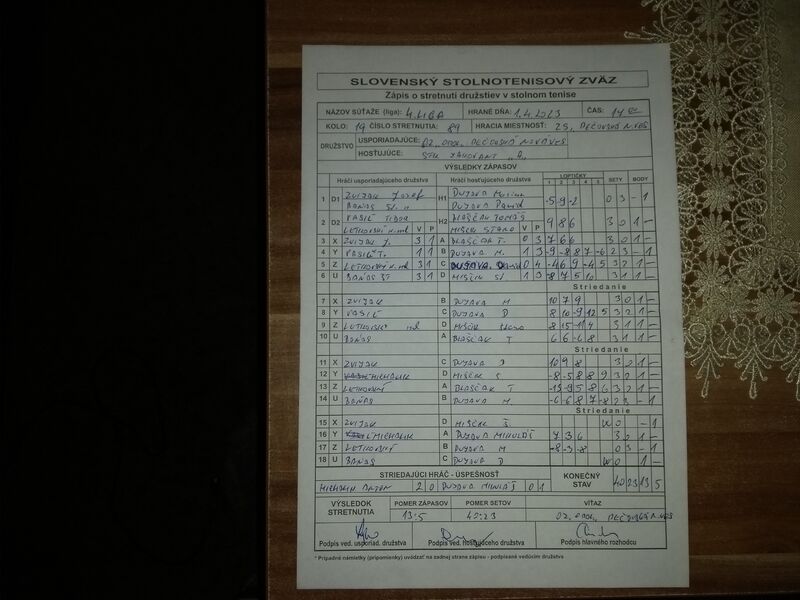 SLOVENSKÝ STOLNOTENISOVÝ ZVÄZ
Zápis o stretnutí družstiev v stolnom tenise
NÁZOV SÚŤAŽE (liga): 4. LIGA HRANÉ DŇA: 1.4.2023 ČAS: 14
KOLO: 19 ČÍSLO STRETNUTIA: 89 HRACIA MIESTNOSŤ: ZŠ, PEČOVSKÁ N. VES
DRUŽSTVO USPORIADAJÚCE: OZ, PEČOVSKÁ NOVÁ VES
HOSŤUJÚCE: STK "A"
VÝSLEDKY ZÁPASOV
Hráči usporiadajúceho družstva Hráči hosťujúceho družstva LOPTIČKY SETY BODY
1 2 3 4 5
1 D1 ZVIJAK Jozef H1 DUJAVA
-5 -9 -2 0 3 - 1
DUJAVA David
2 D2 VASIĽ TIBOR H2 BLAŠČAK TOMÁŠ 9 8 6 3 0 1 -
V P V P
3 X ZVIJAK J. 3 1 A BLAŠČAK T. 0 3 7 6 6 3 0 1 -
4 Y VASIĽ T. 1 1 B DUJAVA M. 1 3 -9 -8 8 7 -6 2 3 - 1
5 Z 3 1 C DUJAVA 0 4 -4 6 9 -4 5 3 2 1 -
6 U 3 1 D 1 3 -8 7 5 10 3 1 1 -
Striedanie
7 X ZVIJAK B DUJAVA M 10 7 9 3 0 1 -
8 Y VASIĽ C DUJAVA D 8 10 -9 -12 5 3 2 1 -
9 Z D 3 1 1 -
10 U BAŇAS A BLAŠČAK T 6 6 -6 8 3 1 1 -
Striedanie
11 X ZVIJAK C DUJAVA D 10 9 8 3 0 1 -
12 Y MICHALIK D -8 -5 8 8 9 3 2 1 -
13 Z A BLAŠČAK T -13 -9 5 8 6 3 2 1 -
14 U BAŇAS B DUJAVA M -6 -6 8 7 -8 2 3 - 1
Striedanie
15 X ZVIJAK D WO - 1
16 Y MICHALIK A DUJAVA MIKULÁŠ 7 3 6 3 0 1 -
17 Z B DUJAVA M -8 -3 -8 0 3 - 1
18 U BAŇAS C DUJAVA D WO 1 -
STRIEDAJÚCI HRÁČ - ÚSPEŠNOSŤ KONEČNÝ STAV 40 23 13 5
MICHALIK 2 0 DUJAVA MIKULÁŠ 0 1
VÝSLEDOK STRETNUTIA POMER ZÁPASOV POMER SETOV VÍŤAZ
13:5 40:23 OZ, PEČOVSKÁ N. VES
Podpis ved. usporiad. družstva Podpis ved. hosťujúceho družstva Podpis hlavného rozhodcu
* Prípadné námietky (pripomienky) uvádzať na zadnej strane zápisu - podpísané vedúcim družstva